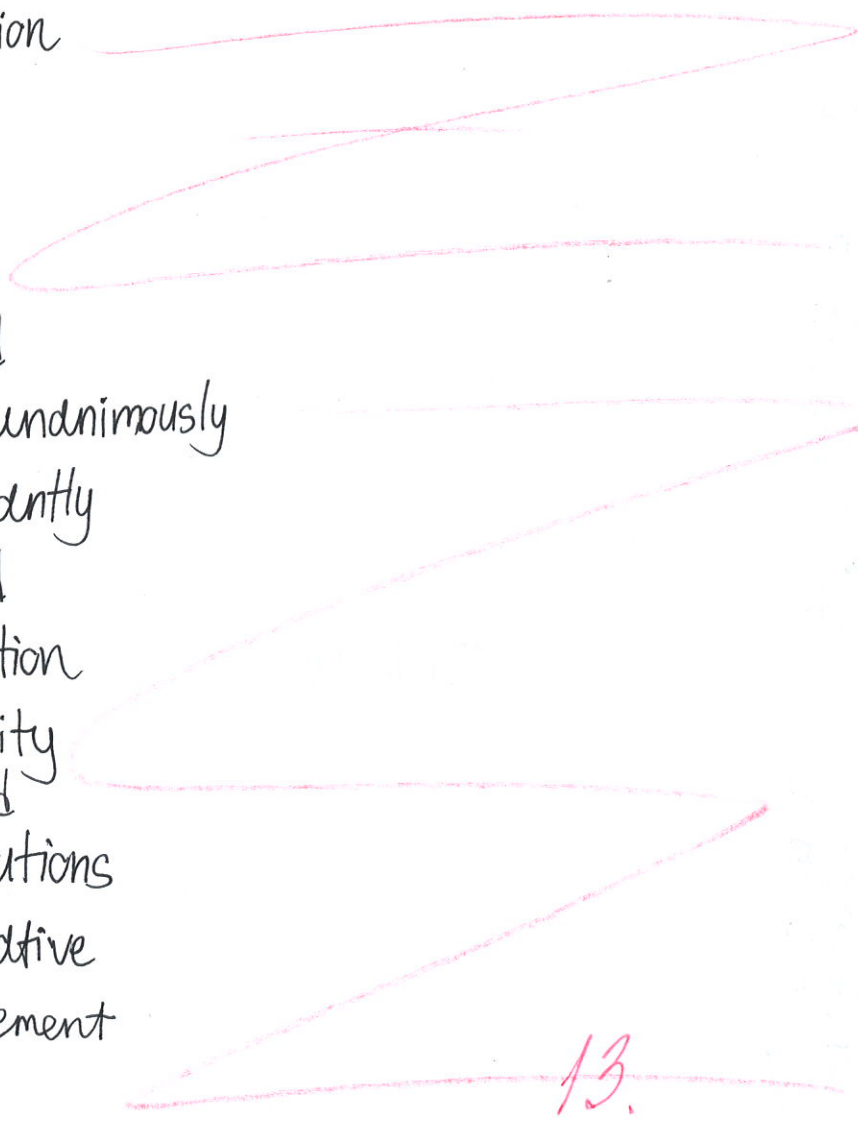 ion
d
unanimously
antly
d
tion
ity
d
utions
ative
ement
13.